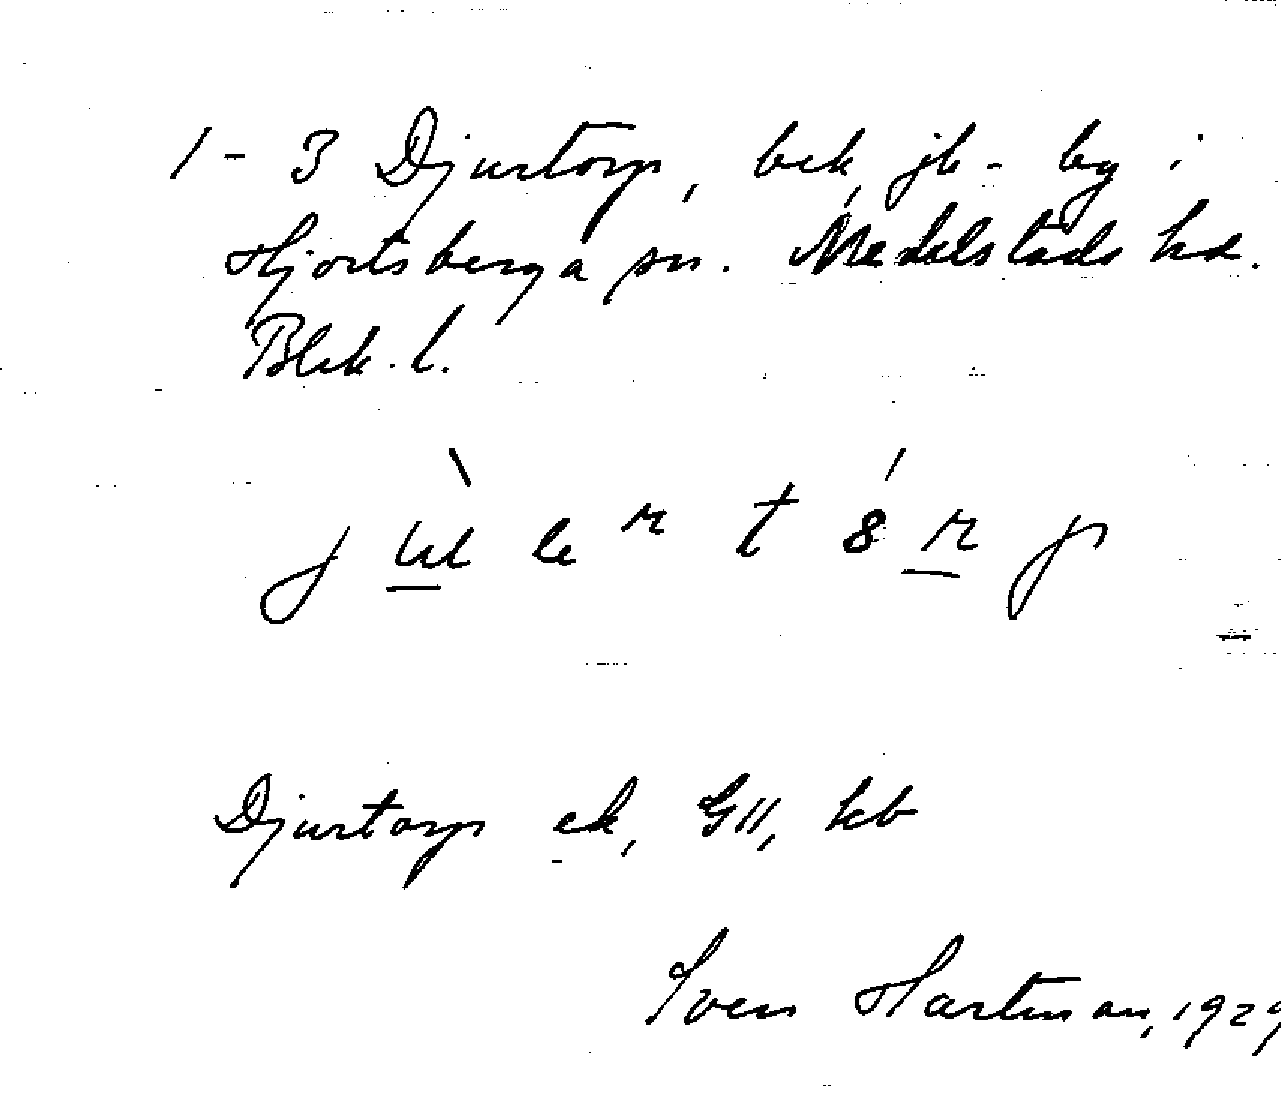 1-3 Djurtorp, bek, jb-by i
Hjortsberga sn. Medelstads hd.
Blek. l.
Djurtorp ek, GII, kb
Sven Hartman, 1929